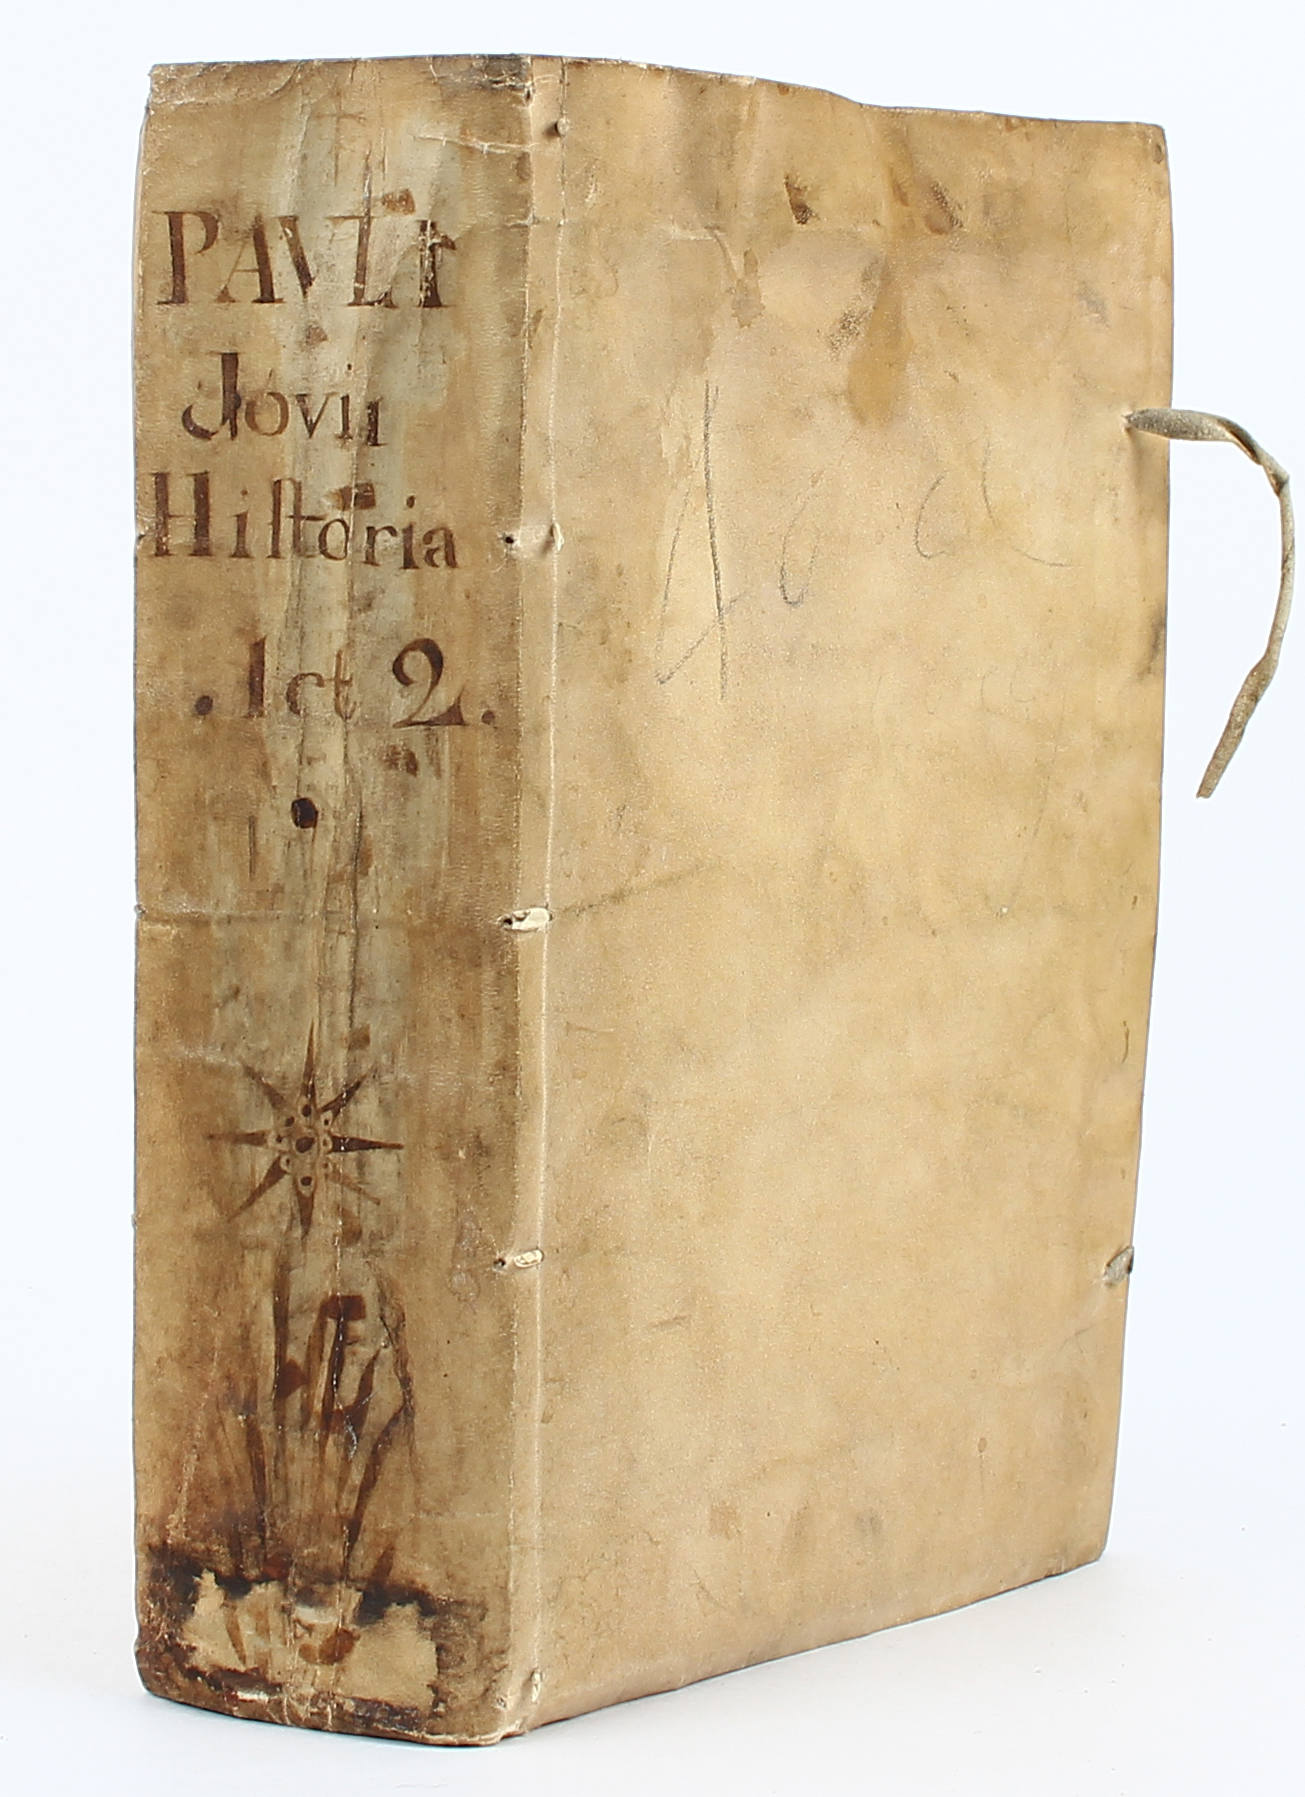 PAVLI
Jovii
Hiſtoria
.1 et 2.